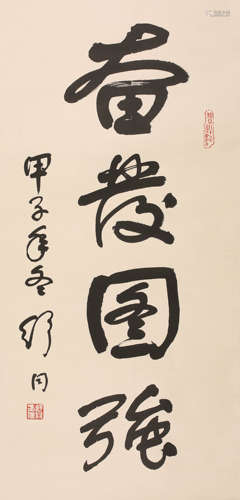 奋發图強
甲子年冬 舒同